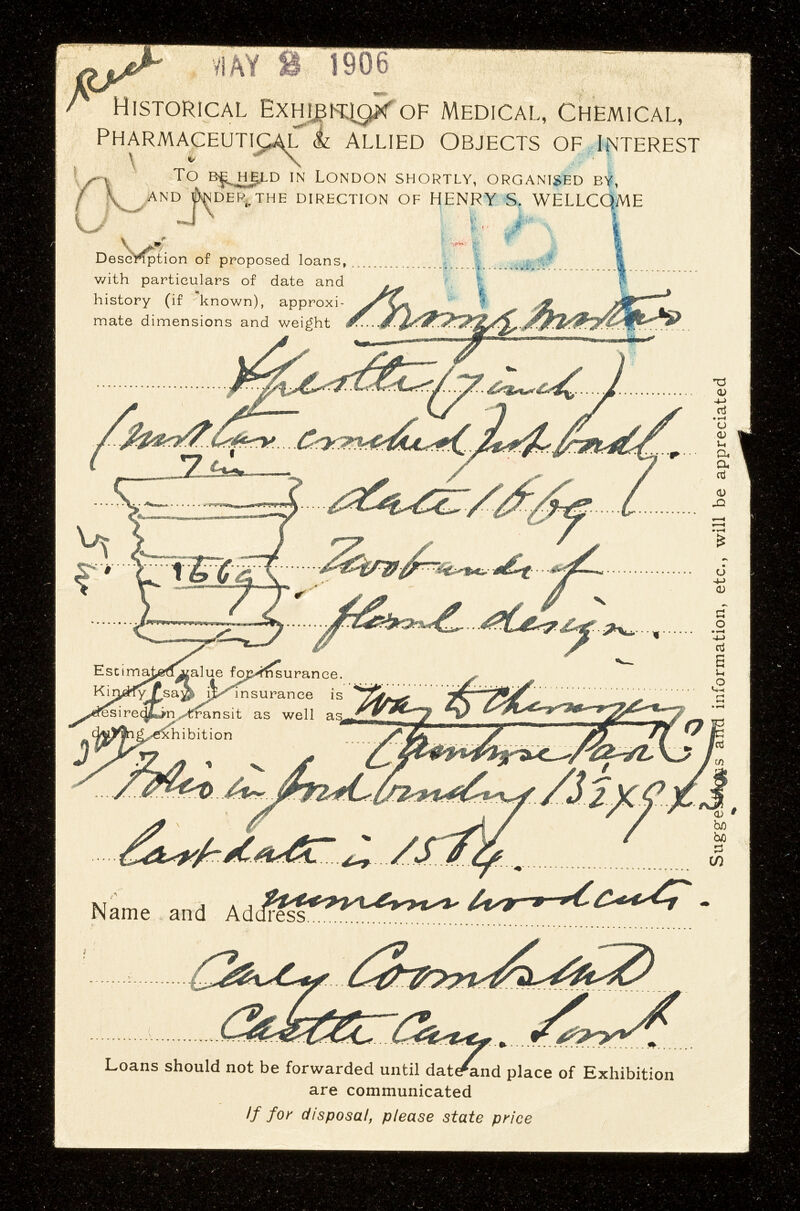 Recd MAY 2 1906
HISTORICAL EXHIBITION OF MEDICAL, CHEMICAL,
PHARMACEUTICAL & ALLIED OBJECTS OF INTEREST
TO BE HELD IN LONDON SHORTLY, ORGANISED BY,
AND UNDER THE DIRECTION OF HENRY S. WELLCOME
137
Description of proposed loans,
with particulars of date and
history (if known), approxi-
mate dimensions and weight Bronze mortar
& pestle (7 inch)
(mortar cracked) not badly.
7 in
date 1669
5 in
1669
Two bands of
floral design.
Estimated value for insurance.
Kindly say if insurance is
desired in transit as well as
during exhibition
say £3
Way to Chirurgery
(Ambrose Paré?)
Folio in good binding 13½ x 9 x
last date is 1564.
numerous woodcuts.
Name and Address
Carey Coombs MD
Castle Cary. Somt.
Loans should not be forwarded until date and place of Exhibition
are communicated
If for disposal, please state price
Suggestions and information, etc., will be appreciated